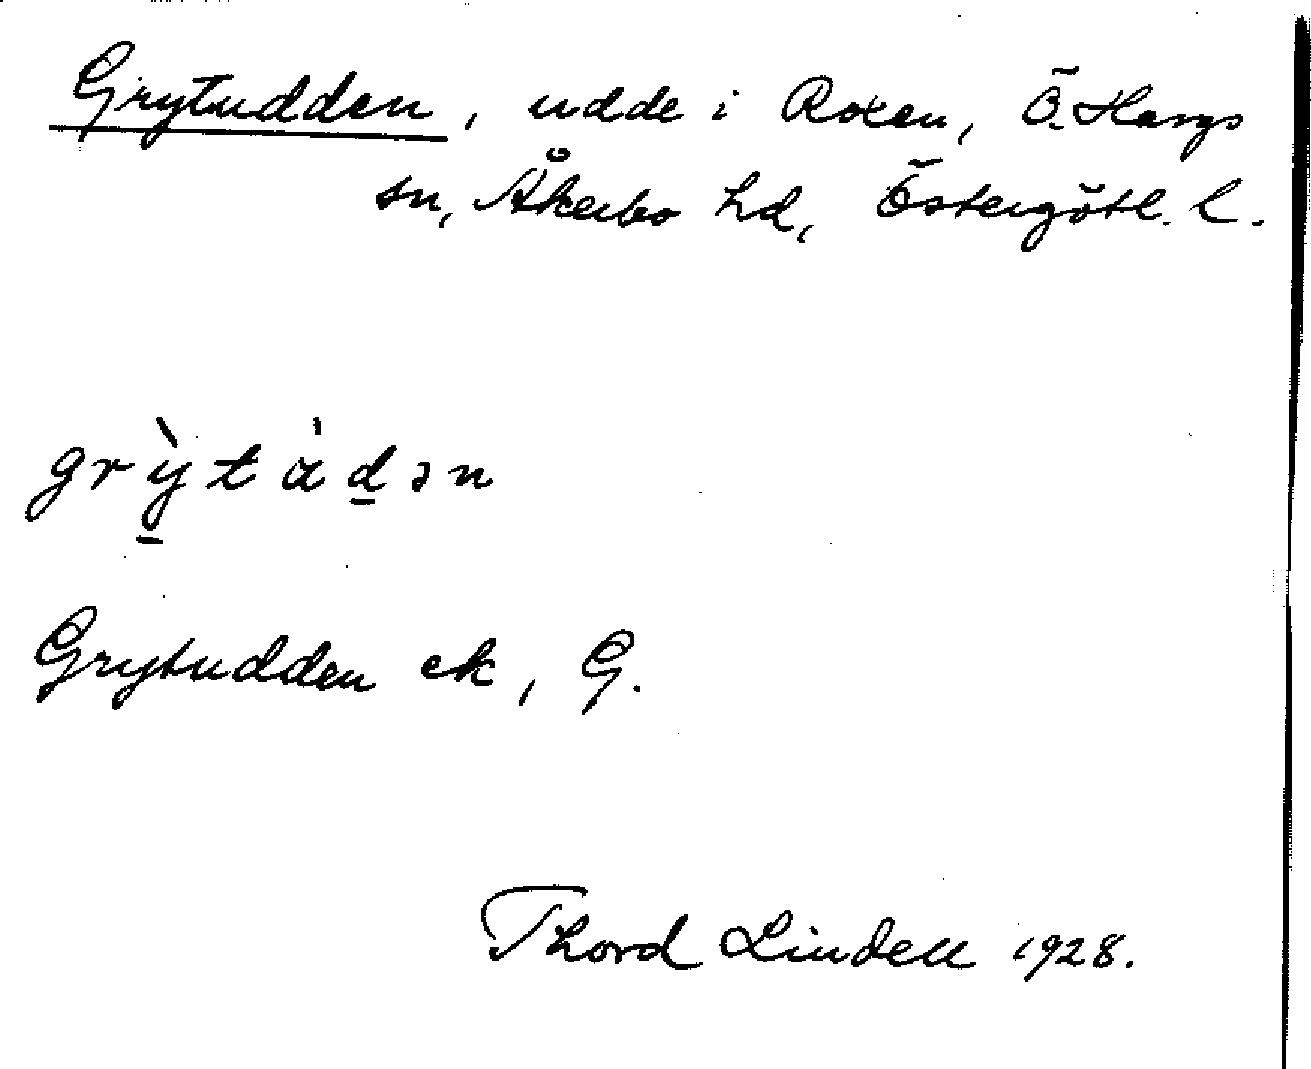 Grytudden, udde i Roxen, Ö. Hargs
sn, Åkerbo hd, Östergötl. l.
grỳtàdən
Grytudden ek, G.
Thord Lindell 1928.